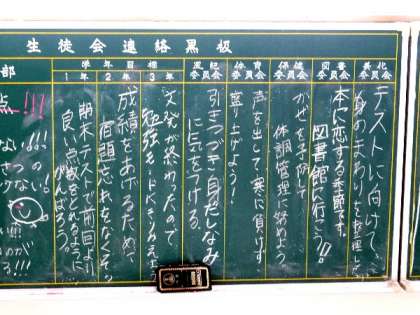 生徒会連絡黒板
美化委員会
テストに向けて、
身のまわりを整理し
図書委員会
本に恋する季節です。
図書館に行こう!!
保健委員会
かぜを予防して
体調管理に努めよう
体育委員会
声を出して、寒に負けず、
盛り上げよう!
風紀委員会
引きつづき身だしなみ
に気をつける。
学年目標
3年
文発が終わったので
勉強モードにきりかえ
2年
成績をあげるため、
宿題忘れをなくそう
1年
期末テストで前回より
良い点数をとれるように
がんばろう。
部
点!!!
ない!!!
さつ
ない
が
!!!